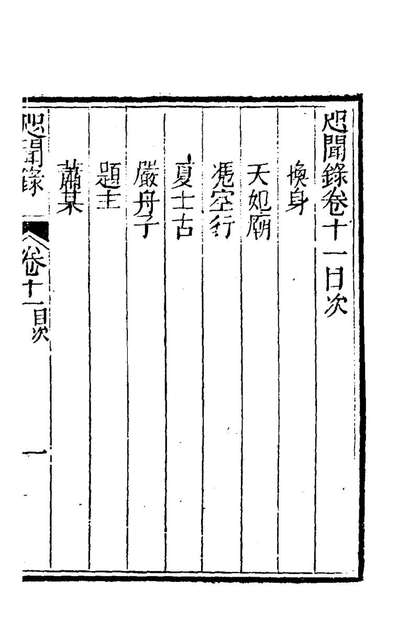 咫聞錄卷十一目次
換身
天妃廟
憑空行
夏士古
嚴丹子
題主
蕭某
咫聞錄
卷十一目次
一